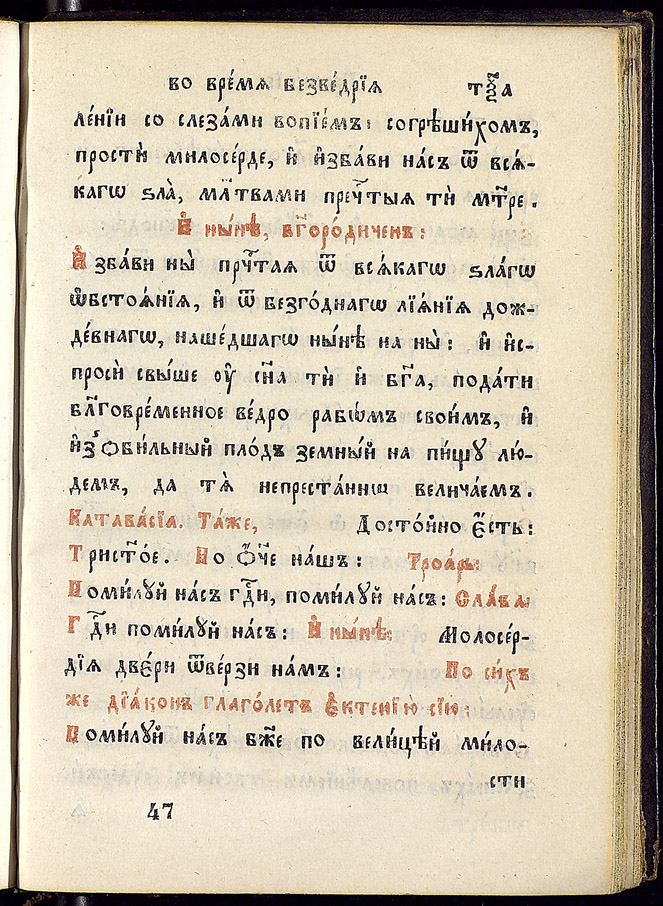 во вре́мѧ безве́дрїѧ тѯ҃а
ле́нїи со слеза́ми вопїе́мъ: согрѣши́хомъ,
простѝ милосе́рде, и҆ и҆зба́ви на́съ ѿ всѧ́-
кагѡ ѕла̀, мл҃твами пречⷭ҇тыѧ тѝ мт҃ре.
И҆ ны́нѣ, бг҃оро́диченъ:
И҆зба́ви ны̀ прчⷭ҇таѧ ѿ всѧ́кагѡ ѕла́гѡ
ѡ҆бстоѧ́нїѧ, и҆ ѿ безго́днагѡ лїѧ́нїѧ дож-
де́внагѡ, наше́дшагѡ ны́нѣ на ны̀: и҆ и҆с-
просѝ свы́ше ᲂу҆ сн҃а тѝ и҆ бг҃а, пода́ти
бл҃говре́менное ве́дро рабѡ́мъ свои́мъ, и҆
и҆з̾ѻби́льный пло́дъ земны́й на пи́щꙋ лю́-
демъ, да тѧ̀ непреста́ннѡ велича́емъ.
Катава́сїѧ. Та́же, Досто́йно є҆́сть:
Трист҃о́е. По Ѻ҆́ч҃е на́шъ: Тропа́рь:
Поми́лꙋй на́съ гдⷭ҇и, поми́лꙋй на́съ: Сла́ва:
Гдⷭ҇и поми́лꙋй на́съ: И҆ ны́нѣ: Молосе́р-
дїѧ две́ри ѿве́рзи на́мъ: По си́хъ
же дїа́конъ глаго́летъ є҆ктенїю̀ сїю̀:
Поми́лꙋй на́съ бж҃е по вели́цѣй ми́ло-
сти
47